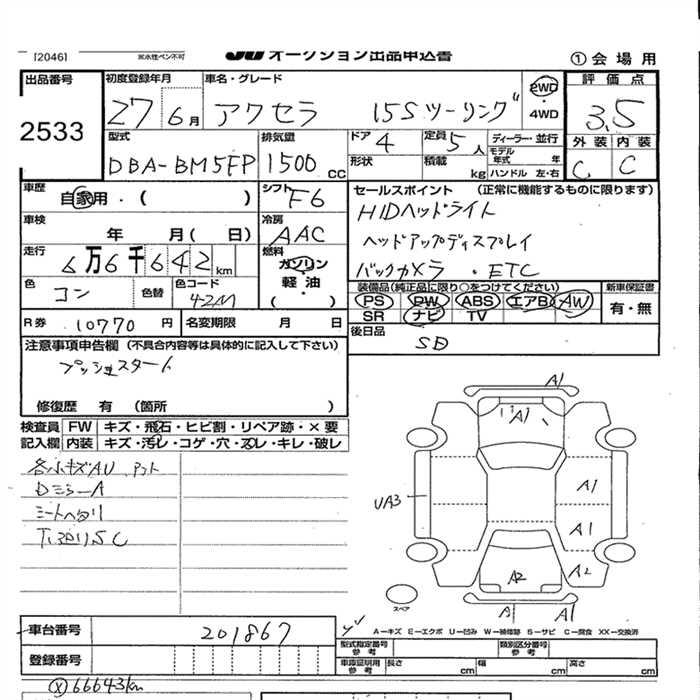 [2046] ※水性ペン不可 JU オークション出品申込書 ①会場用
出品番号 初度登録年月 車名・グレード 2WD 評価点
2533 27 6月 アクセラ 15Sツーリング ・4WD 3.5
型式 排気量 ドア 定員 ディーラー・並行 外装 内装
DBA-BM5FP 1500cc 4 5人 モデル年式 年 C C
形状 積載 kg ハンドル 左・右
車歴 シフト セールスポイント (正常に機能するものに限ります)
自家用・( ) F6 HIDヘッドライト
車検 冷房 ヘッドアップディスプレイ
年 月( 日) AAC
走行 燃料 バックカメラ・ETC
6万6千642km ガソリン
軽油
・( )
装備品(純正品に限り○をつけてください) 新車保証書
色 色替 色コード PS PW ABS エアB AW 有・無
コン 42M SR ナビ TV
R券 10770円 名変期限 月 日 後日品
SD
注意事項申告欄 (不具合内容等は具体的に記入して下さい)
プッシュスタート
修復歴 有 (箇所 )
検査員 FW キズ・飛石・ヒビ割・リペア跡・×要
記入欄 内装 キズ・汚レ・コゲ・穴・スレ・キレ・破レ
各小キズAU
DミラーA
シートヘタリ
A1
A1
A1
UA3
A1
A2
A2
スペア
A1
A1
A−キズ E−エクボ U−凹み W−補修跡 S−サビ C−腐食 XX−交換済
車台番号 201867
型式指定番号 参考 類別区分番号 参考
登録番号
車庫証明用 参考 長さ cm 幅 cm 高さ cm
66643km